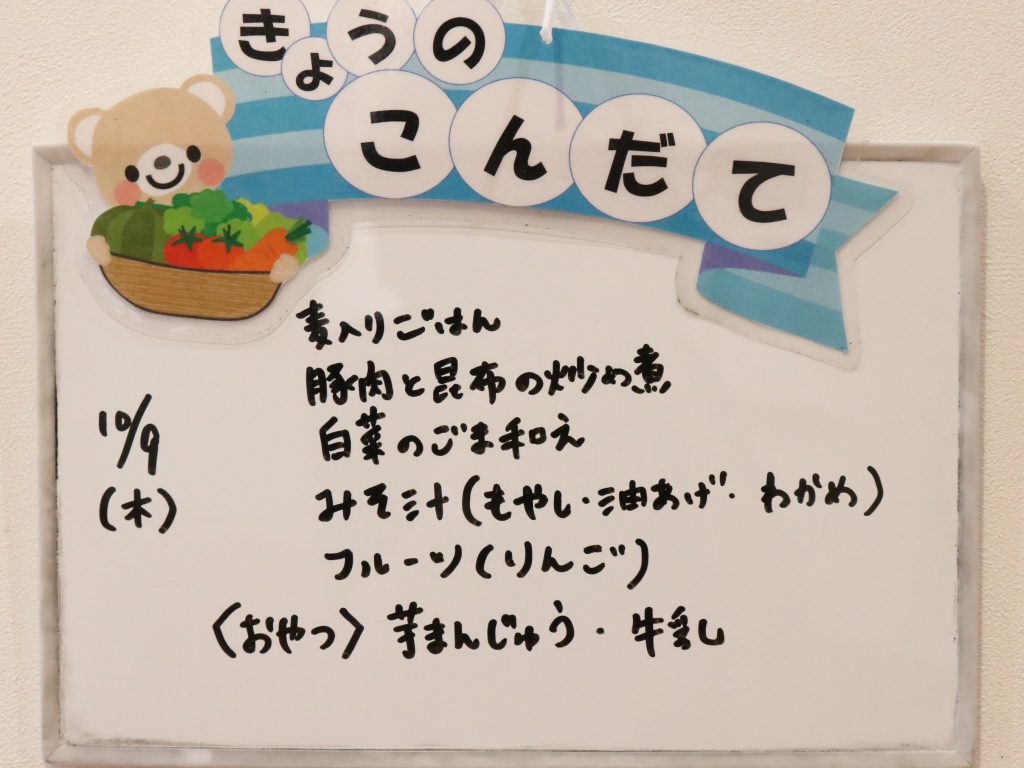 きょうの
こんだて
麦入りごはん
豚肉と昆布の炒め煮
10/9
白菜のごま和え
(木)
みそ汁(もやし・油あげ・わかめ)
フルーツ(りんご)
〈おやつ〉芋まんじゅう・牛乳